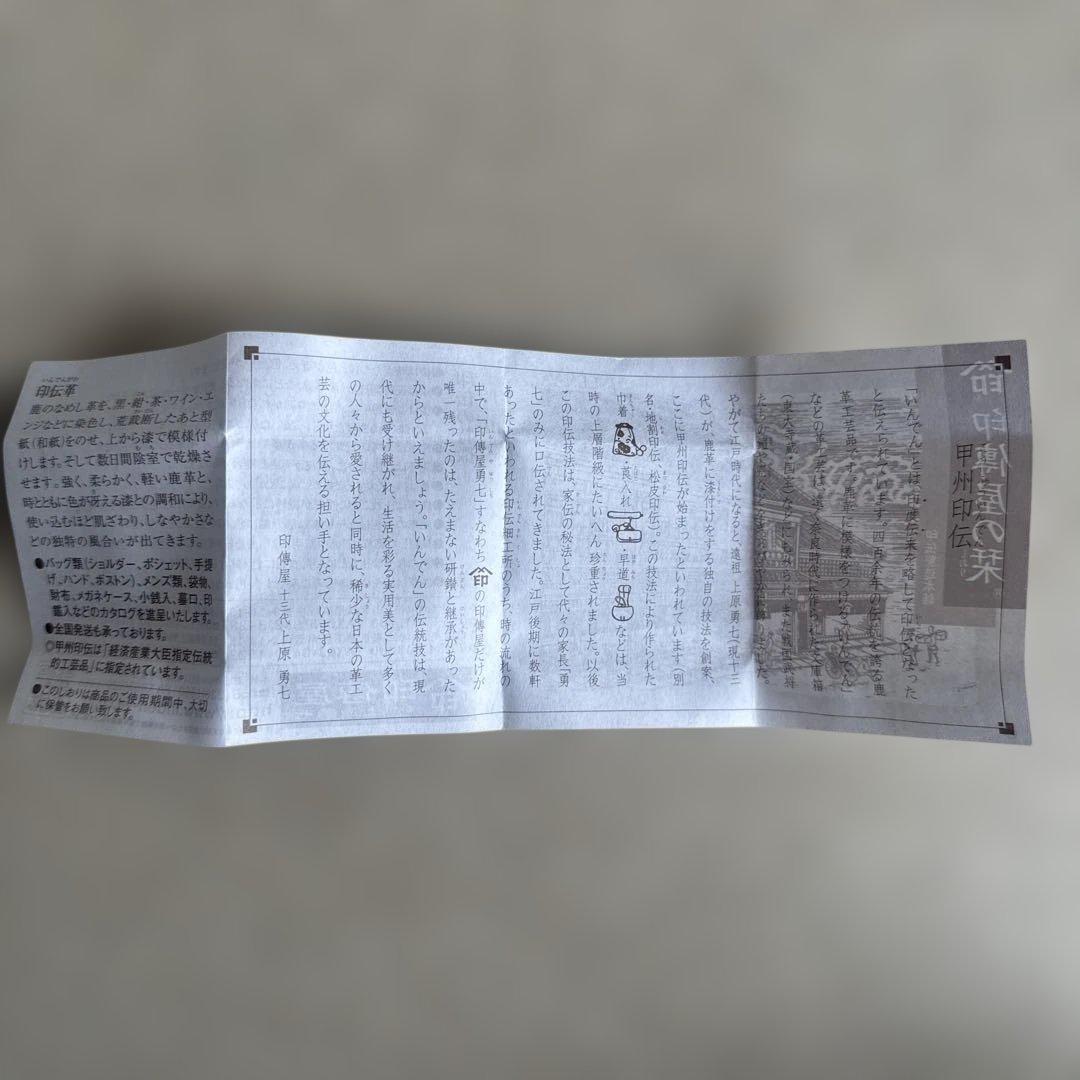 甲州印伝
「いんでん」とは、印度伝来を略して印伝となった
と伝えられています。四百余年の伝統を誇る鹿
革工芸品です。鹿革に模様をつける「いんでん」
などの革工芸は、遠く奈良時代に作られた文庫箱
やがて江戸時代になると、遠祖 上原勇七(現十三
代)が、鹿革に漆付けをする独自の技法を創案、
ここに甲州印伝が始まったといわれています(別
名、地割印伝、松皮印伝)。この技法により作られた
巾着・莨入れ・早道などは、当
時の上層階級にたいへん珍重されました。以後
この印伝技法は、家伝の秘法として代々の家長「勇
七」のみに口伝されてきました。江戸後期に数軒
あったといわれる印伝細工所のうち、時の流れの
中で、「印傳屋勇七」すなわちの印傳屋だけが
唯一残ったのは、たえまない研鑚と継承があった
からといえましょう。「いんでん」の伝統技は、現
代にも受け継がれ、生活を彩る実用美として多く
の人々から愛されると同時に、稀少な日本の革工
芸の文化を伝える担い手となっています。
印傳屋 十三代 上原勇七
いんでんがわ
印伝革
鹿のなめし革を、黒・紺・茶・ワイン・エ
ンジなどに染色し、荒裁断したあと型
紙(和紙)をのせ、上から漆で模様付
けします。そして数日間陰室で乾燥さ
せます。強く、柔らかく、軽い鹿革と、
時とともに色が冴える漆との調和により、
使い込むほど肌ざわり、しなやかさな
どの独特の風合いが出てきます。
●バッグ類(ショルダー、ポシェット、手提
げ、ハンド、ボストン)、メンズ類、袋物、
財布、メガネケース、小銭入、蟇口、印
鑑入などのカタログを進呈いたします。
●全国発送も承っております。
◎甲州印伝は「経済産業大臣指定伝統
的工芸品」に指定されています。
●このしおりは商品のご使用期間中、大切
に保管をお願い致します。
印傳屋の栞